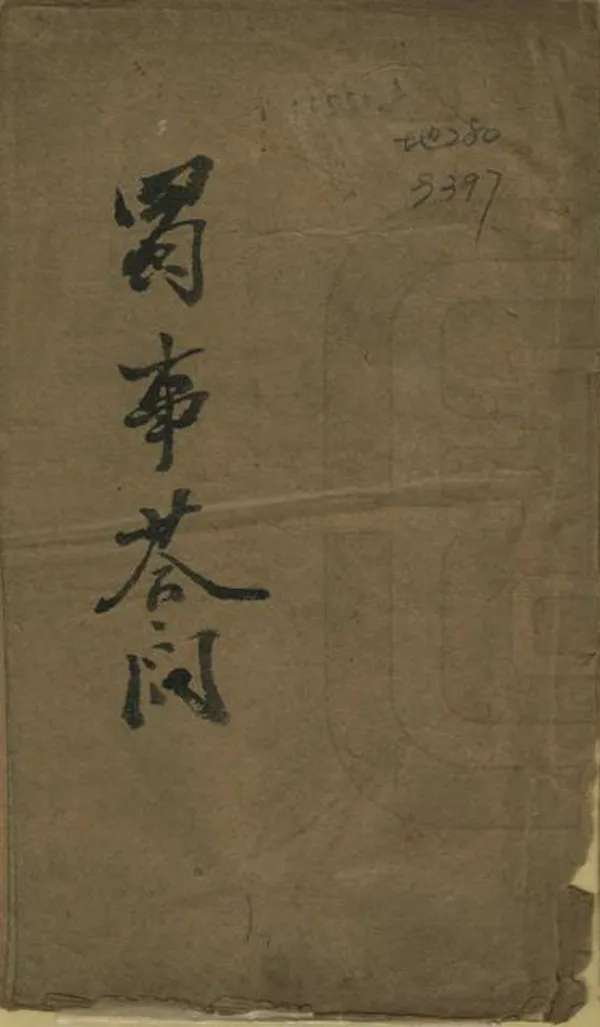 蜀事荅问
地280
8397